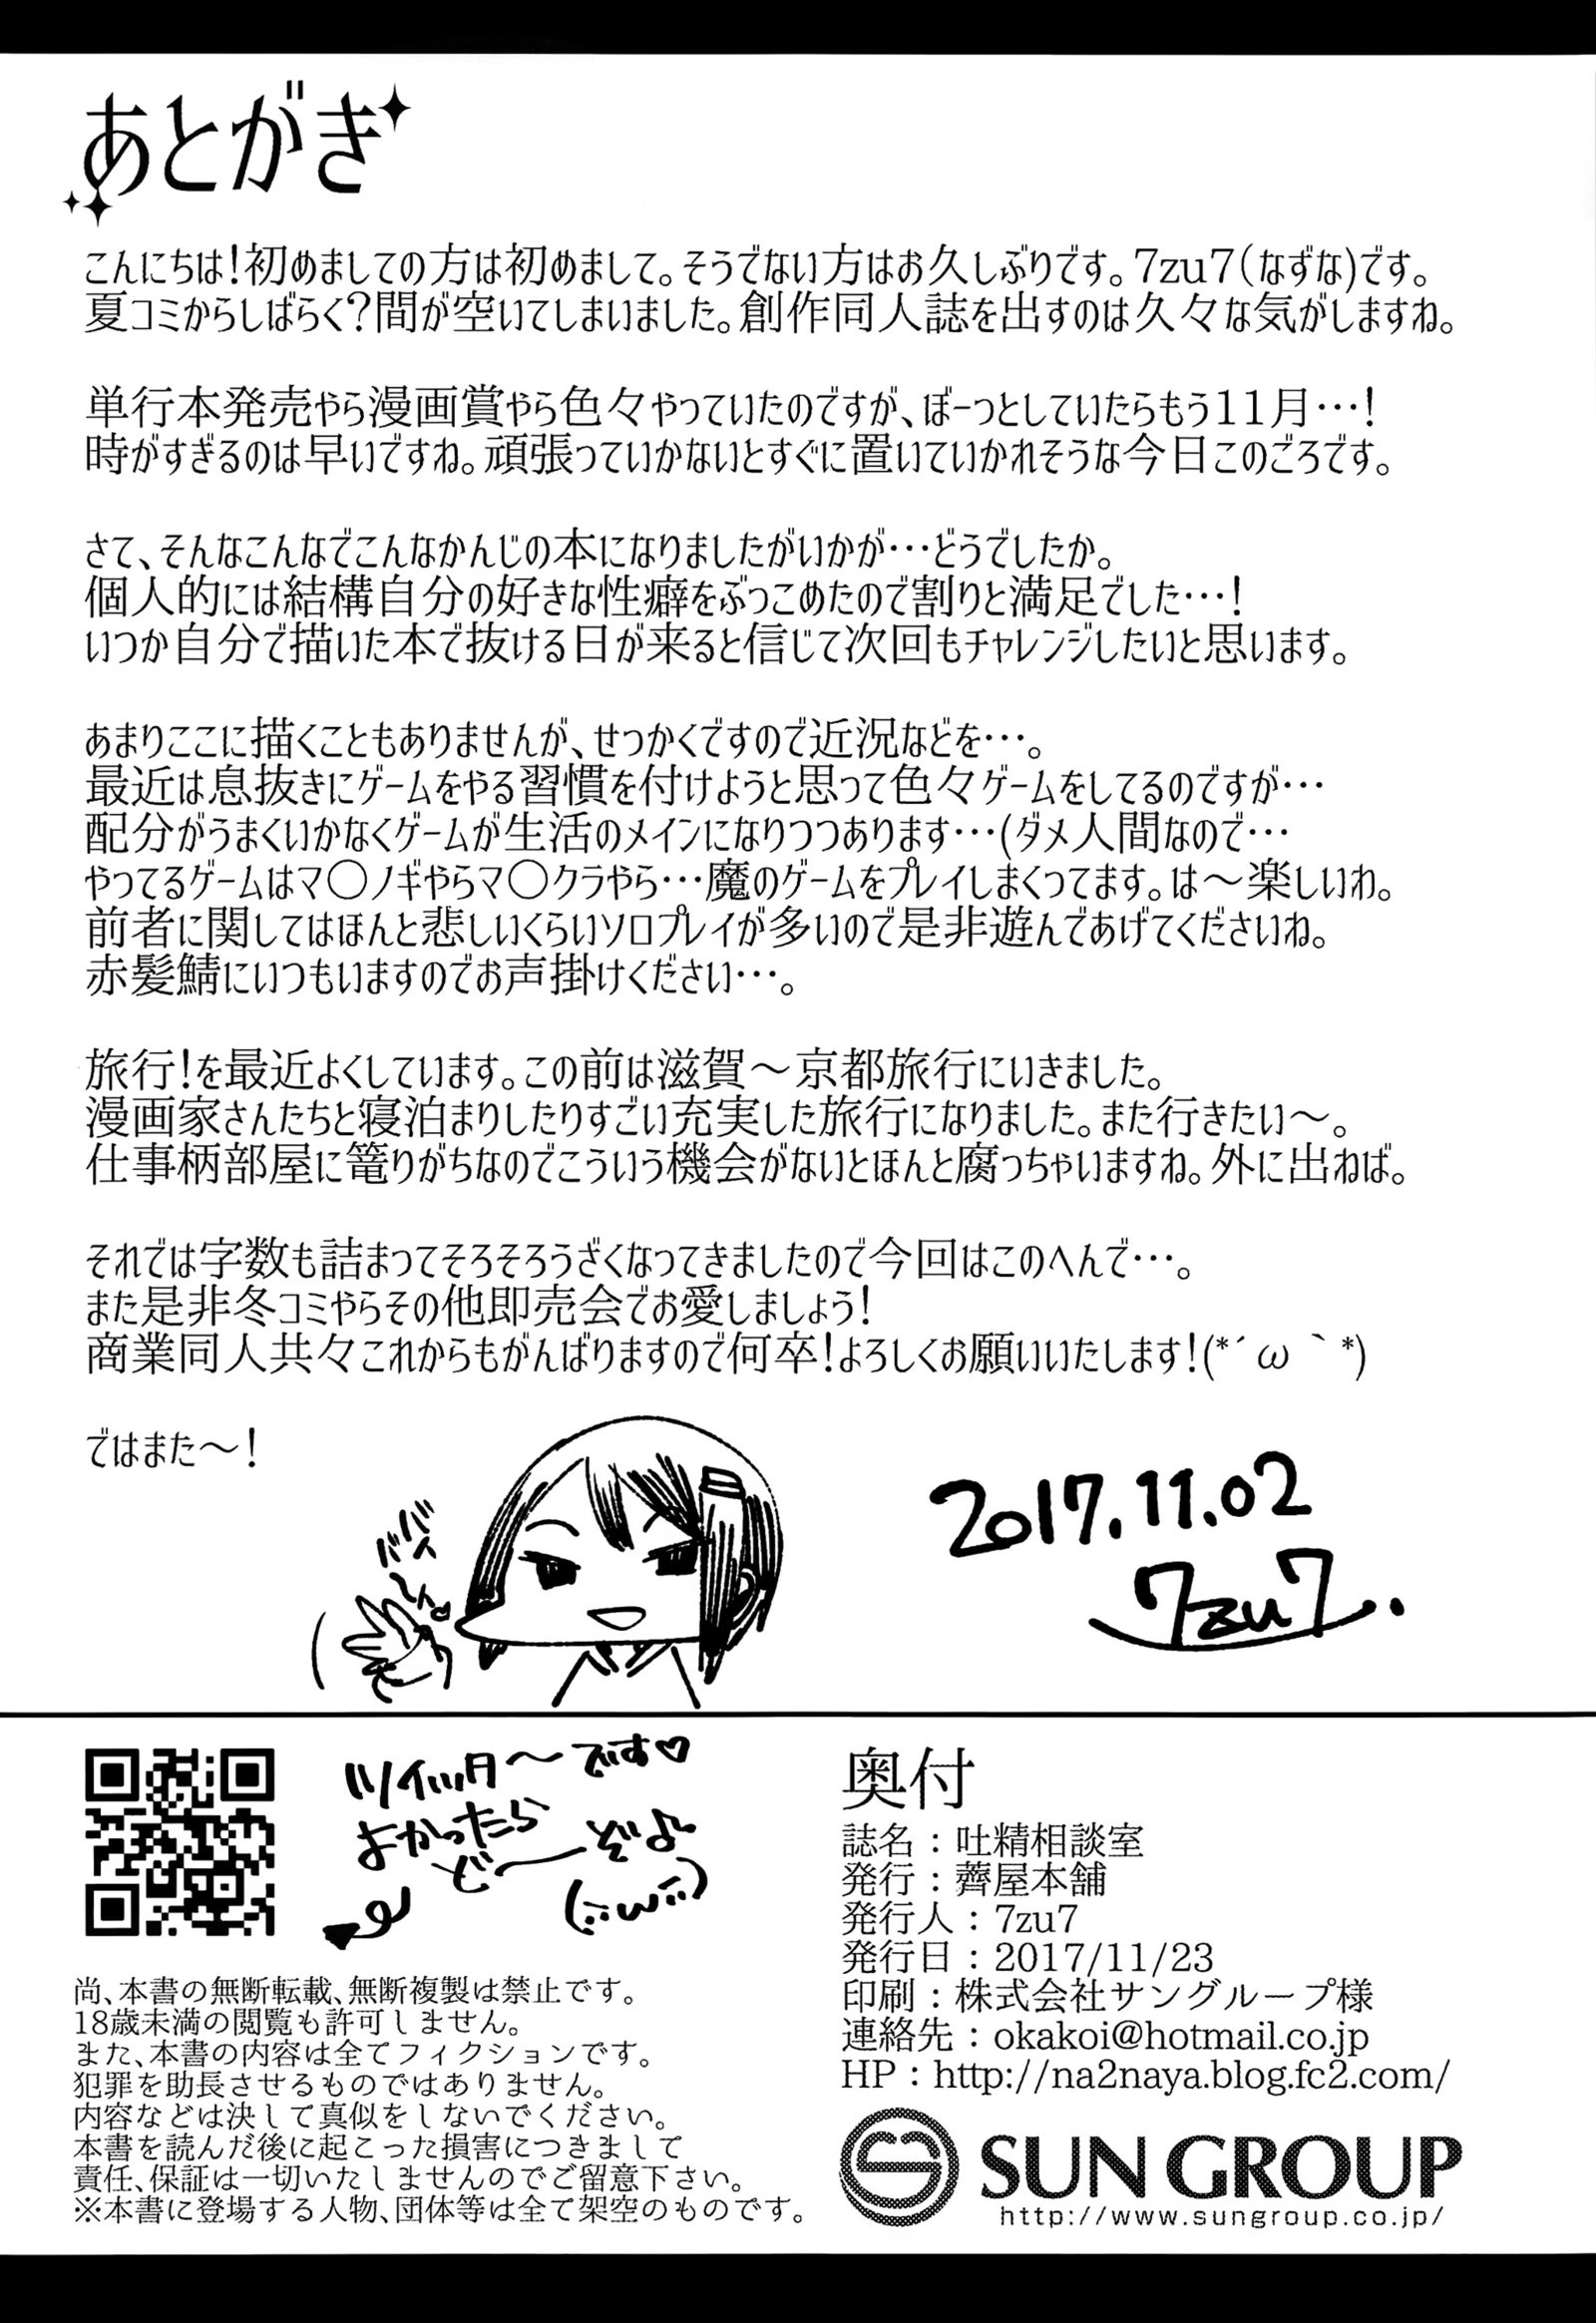 あとがき
こんにちは！初めましての方は初めまして。そうでない方はお久しぶりです。7zu7（なずな）です。
夏コミからしばらく？間が空いてしまいました。創作同人誌を出すのは久々な気がしますね。
単行本発売やら漫画賞やら色々やっていたのですが、ぼーっとしていたらもう11月…！
時がすぎるのは早いですね。頑張っていかないとすぐに置いていかれそうな今日このごろです。
さて、そんなこんなでこんなかんじの本になりましたがいかが…どうでしたか。
個人的には結構自分の好きな性癖をぶっこめたので割りと満足でした…！
いつか自分で描いた本で抜ける日が来ると信じて次回もチャレンジしたいと思います。
あまりここに描くこともありませんが、せっかくですので近況などを…。
最近は息抜きにゲームをやる習慣を付けようと思って色々ゲームをしてるのですが…
配分がうまくいかなくゲームが生活のメインになりつつあります…(ダメ人間なので…
やってるゲームはマ○ノギやらマ○クラやら…魔のゲームをプレイしまくってます。は～楽しいわ。
前者に関してはほんと悲しいくらいソロプレイが多いので是非遊んであげてくださいね。
赤髪鯖にいつもいますのでお声掛けください…。
旅行！を最近よくしています。この前は滋賀～京都旅行にいきました。
漫画家さんたちと寝泊まりしたりすごい充実した旅行になりました。また行きたい～。
仕事柄部屋に篭りがちなのでこういう機会がないとほんと腐っちゃいますね。外に出ねば。
それでは字数も詰まってそろそろうざくなってきましたので今回はこのへんで…。
また是非冬コミやらその他即売会でお愛しましょう！
商業同人共々これからもがんばりますので何卒！よろしくお願いいたします！(*´ω｀*)
ではまた～！
ババイ
～ん♡
2017.11.02
7zu7.
ツイッタ～です♡
よかったら
ど――ぞ♪
(::ω::)
尚、本書の無断転載、無断複製は禁止です。
18歳未満の閲覧も許可しません。
また、本書の内容は全てフィクションです。
犯罪を助長させるものではありません。
内容などは決して真似をしないでください。
本書を読んだ後に起こった損害につきまして
責任、保証は一切いたしませんのでご留意下さい。
※本書に登場する人物、団体等は全て架空のものです。
奥付
誌名：吐精相談室
発行：薺屋本舗
発行人：7zu7
発行日：2017/11/23
印刷：株式会社サングループ様
連絡先：okakoi@hotmail.co.jp
HP：http://na2naya.blog.fc2.com/
SUN GROUP
http://www.sungroup.co.jp/